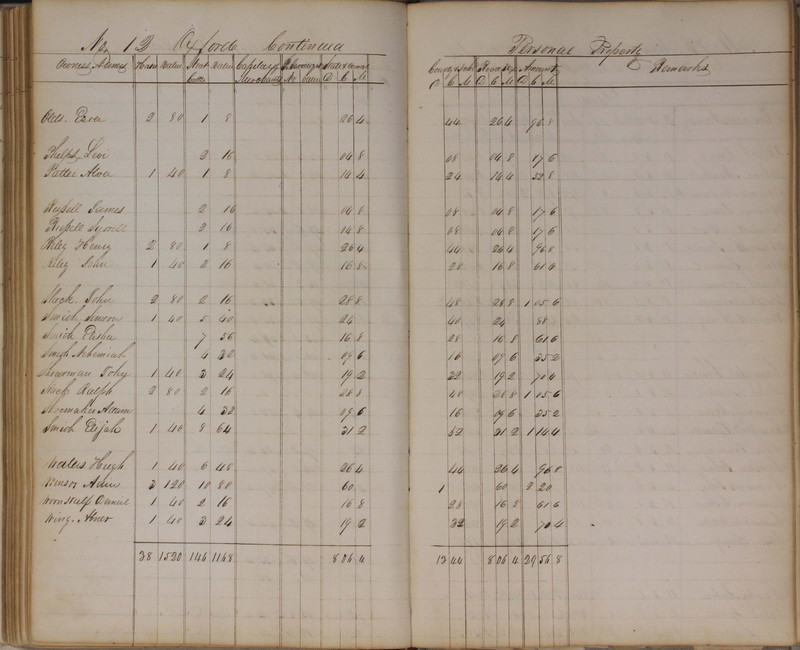 No 12 Oxford Continued Personal Property
Owners Names Horses Value Neat Cattle Value Capital Merchants No Value State & C M County & Sch C M Road Tax C M Amount D C M Remarks
Olds Ezra 2 80 1 8 26 4 44 26 4 96 8
Phelps Levi 2 16 04 8 08 04 8 17 6
Alva 1 40 1 8 14 4 24 14 4 52 8
Russell James 2 16 04 8 08 04 8 17 6
Russell 2 16 04 8 08 04 8 17 6
Riley Henry 2 80 1 8 26 4 44 26 4 96 8
Riley John 1 40 2 16 16 8 28 16 8 61 6
John 2 80 2 16 28 8 48 28 8 1 05 6
Smith 1 40 5 40 24 40 24 88
Smith Elisha 7 56 16 8 28 16 8 61 6
Smith Nehemiah 4 32 09 6 16 09 6 35 2
1 40 3 24 19 2 32 19 2 70 4
Ralph 2 80 2 16 28 8 48 28 8 1 05 6
Shoemaker Adam 4 32 09 6 16 09 6 35 2
Smith Elijah 1 40 8 64 31 2 52 31 2 1 14 4
Hugh 1 40 6 48 26 4 44 26 4 96 8
3 120 10 80 60 1 60 2 20
Daniel 1 40 2 16 16 8 28 16 8 61 6
Wing Abner 1 40 3 24 19 2 32 19 2 70 4
38 1520 146 1168 8 06 4 13 44 8 06 4 29 56 8